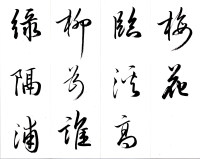 梅花
臨溪高
柳為誰
綠隔浦